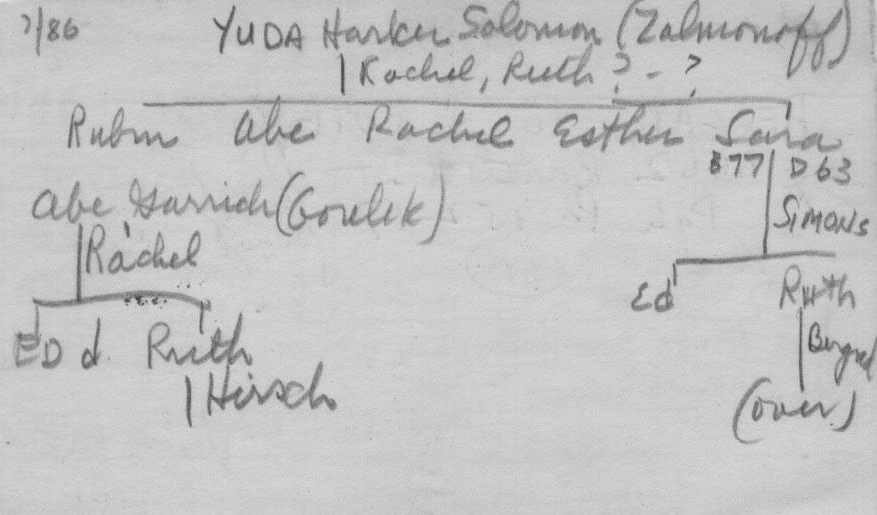 7/86 YUDA Harker Solomon (Zalmonoff)
Rachel, Ruth ? - ?
Rubin Abe Rachel Esther Sara
B77 D63
SIMONS
Abe (Gorelik)
Rachel
Ed Ruth
ED d. Ruth
Hirsch
(over)